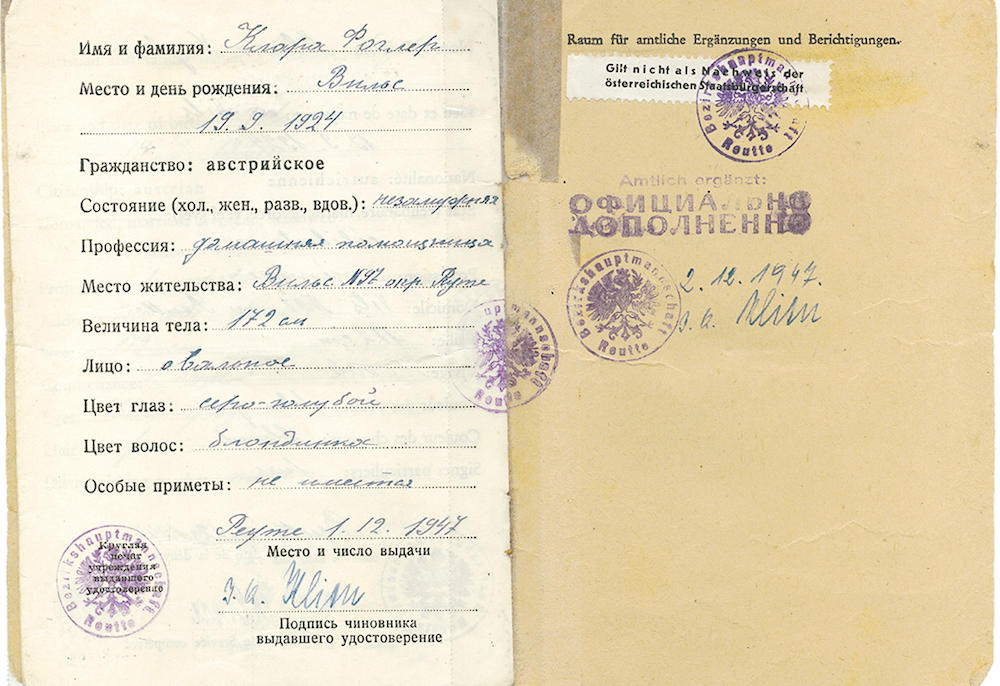 Имя и фамилия: Клара Роглер
Место и день рождения: Вильс
19. 9. 1924
Гражданство: австрийское
Состояние (хол., жен., разв., вдов.): незамужняя
Профессия: домашняя помощница
Место жительства: Вильс №97 окр. Руте
Величина тела: 172 см
Лицо: овальное
Цвет глаз: серо-голубой
Цвет волос: блондинка
Особые приметы: не имеются
Реуте 1. 12. 1947
Место и число выдачи
Круглая
печат
учреждения
выдавшего
удостоверение
Bezirkshauptmannschaft
Reutte
Подпись чиновника
выдавшего удостоверение
Bezirkshauptmannschaft
Reutte
Raum für amtliche Ergänzungen und Berichtigungen.
Gilt nicht als Nachweis der
österreichischen Staatsbürgerschaft
Bezirkshauptmannschaft
Reutte
Amtlich ergänzt:
ОФИЦИАЛЬНО
ДОПОЛНЕННО
Bezirkshauptmannschaft
Reutte
2. 12. 1947.